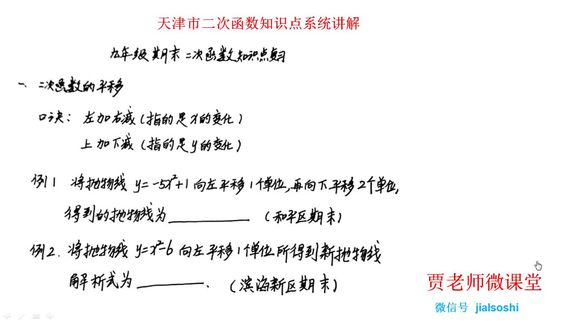 天津市二次函数知识点系统讲解
九年级期末二次函数知识点复习
一、二次函数的平移
口诀：左加右减（指的是x的变化）
上加下减（指的是y的变化）
例1 将抛物线 y=-5x²+1 向左平移1个单位，再向下平移2个单位，
得到的抛物线为__________（和平区期末）
例2. 将抛物线 y=x²-6 向左平移1个单位所得到新抛物线
解析式为__________.（滨海新区期末）
贾老师微课堂
微信号 jialsoshi